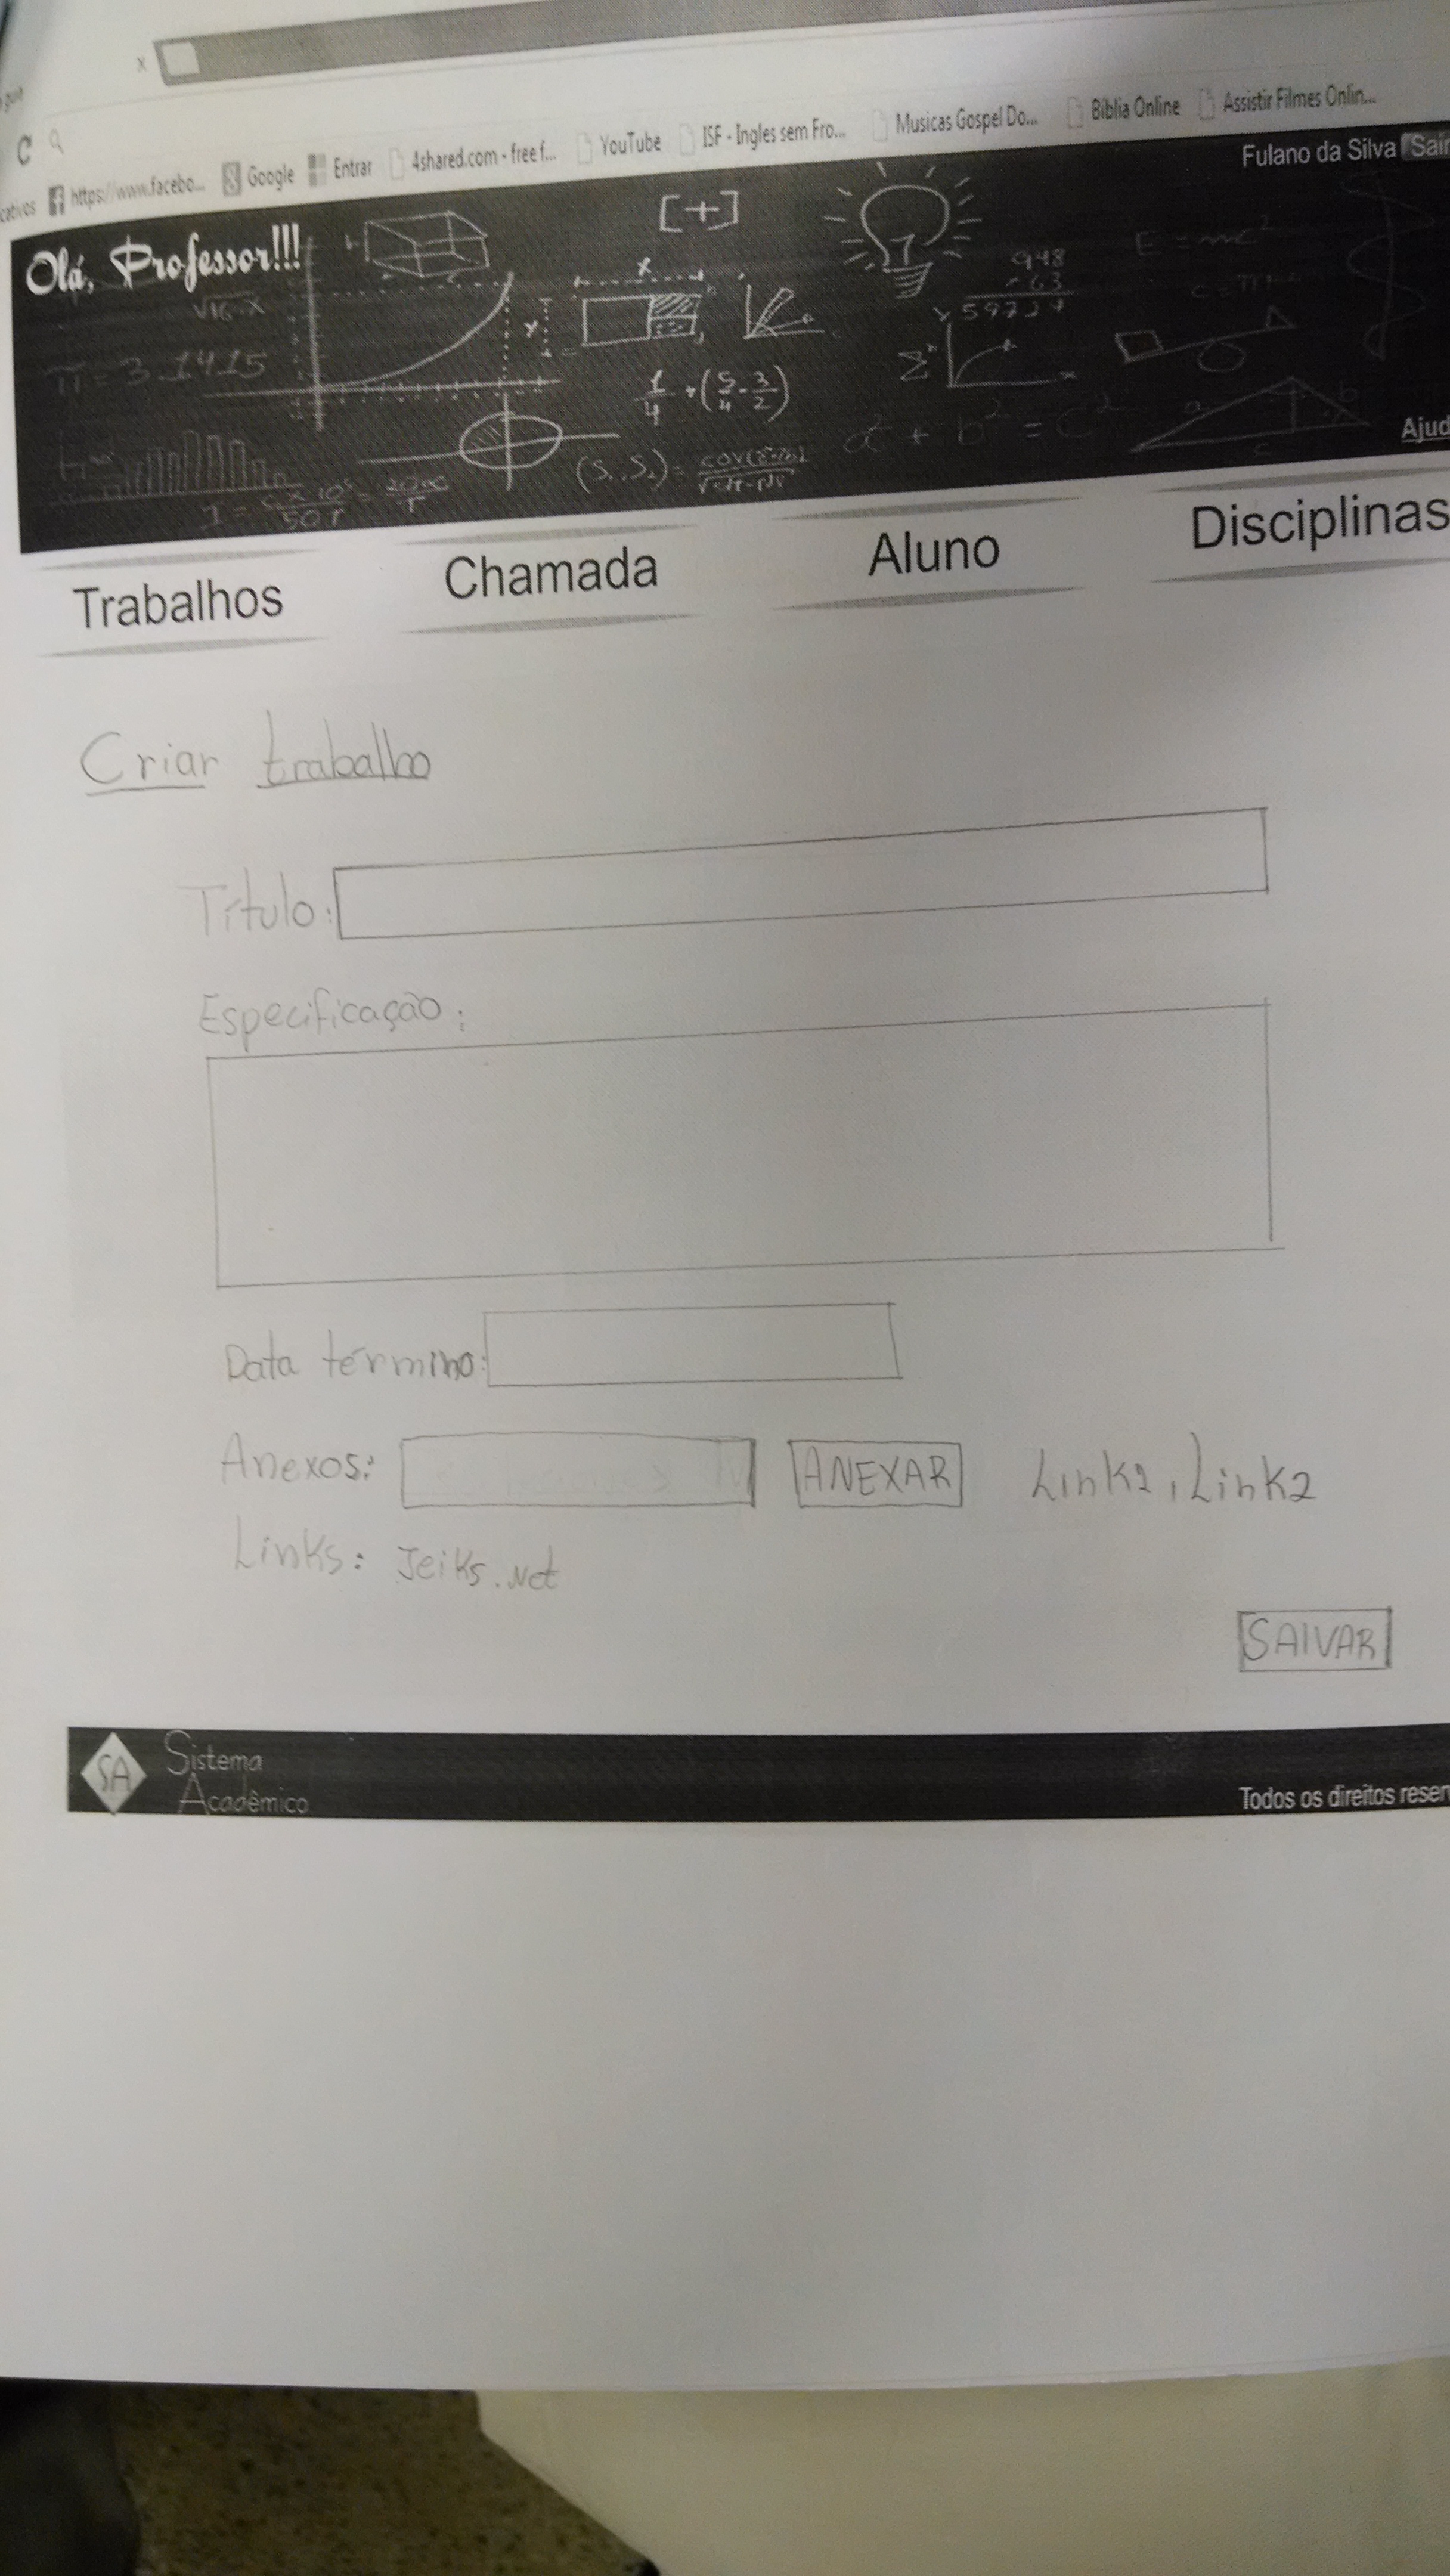 https://www.facebo... Google Entrar 4shared.com - free f... YouTube ISF - Ingles sem Fro... Musicas Gospel Do... Bíblia Online Assistir Filmes Onlin...
Fulano da Silva Sair
Olá, Professor!!!
[+]
√16-x
π=3.1415
948
63
59724
E=mc²
1/4 + (5/4 - 3/2)
a² + b² = c²
Ajud
Trabalhos Chamada Aluno Disciplinas
Criar trabalho
Título:
Especificação:
Data término:
Anexos: ANEXAR Link1, Link2
Links: Jeiks.Net
SALVAR
SA Sistema
Acadêmico
Todos os direitos reser